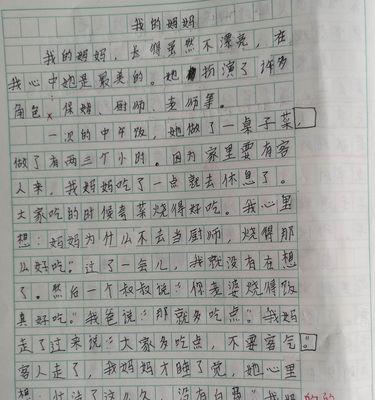 我的妈妈
我的妈妈，长得虽然不漂亮，在
我心中她是最美的。她扮演了许多
角色：保姆、厨师、老师等。
一次的中午饭，她做了一桌子菜，
做了有两三个小时。因为家里要有客
人来，我妈妈吃了一点就去休息了。
大家吃的时候夸菜烧得好吃。我心里
想：妈妈为什么不去当厨师，烧得那
么好吃。”过了一会儿，我就没有在想
了。然后一个叔叔说：“你老婆烧得饭
真好吃。”我爸说：“那就多吃点。”我妈
走了过来说：“大家多吃点，不要客气。”
客人走了，我妈妈才睡了觉，她心里
想：忙活了这么久，没有白费。”我妈
的的